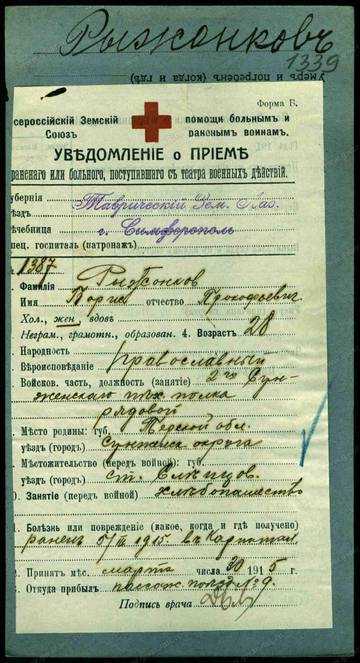 Рыжонковъ
1339
умеръ и погребенъ (когда и гдѣ)
Форма Б.
сероссійскій Земскій помощи больнымъ и
Союзъ раненымъ воинамъ.
УВѢДОМЛЕНІЕ о ПРІЕМѢ
раненаго или больного, поступившаго съ театра военныхъ дѣйствій.
убернія Таврическій Зем. Лаз.
ѣздъ
ѣчебница г. Симферополь
пец. госпиталь (патронаж)
1387
Фамилія Рыжонков
Имя Борис отчество Прокофьевич
Хол., жен., вдовъ
Неграм., грамотн., образован. 4. Возрастъ 28
Народность
Вѣроисповѣданіе Православный
Войсков. часть, должность (занятіе) 2го Сун-
женскаго полка
рядовой
Мѣсто родины: губ. Терской обл.
уѣздъ (городъ) Сунжен. округа
Мѣстожительство (передъ войной): губ.
уѣздъ (городъ) ст.
0. Занятіе (передъ войной) хлѣбопашество
1. Болѣзнь или поврежденіе (какое, когда и гдѣ получено)
ранен 5/III 1915 в Карпатах
Принятъ мѣс. марта числа 20 1915 г.
Откуда прибылъ пассаж. поѣзд №9.
Подпись врача